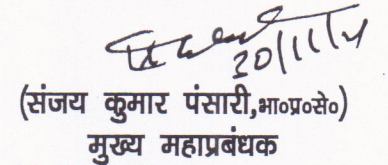 30/11/21
(संजय कुमार पंसारी,भा०प्र०से०)
मुख्य महाप्रबंधक